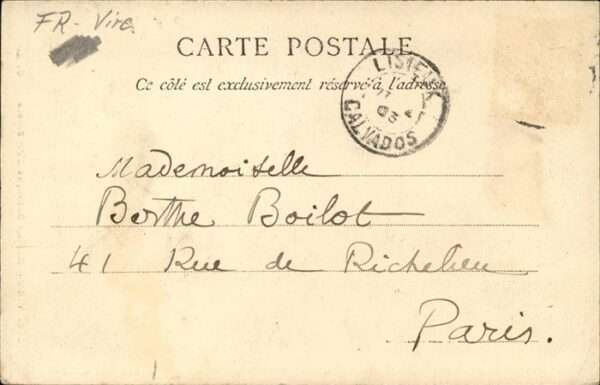 FR- Vire.
CARTE POSTALE
Ce côté est exclusivement réservé à l'adresse
LISIEUX
03
CALVADOS
Mademoiselle
Berthe Boilot
41 Rue de Richelieu
Paris.